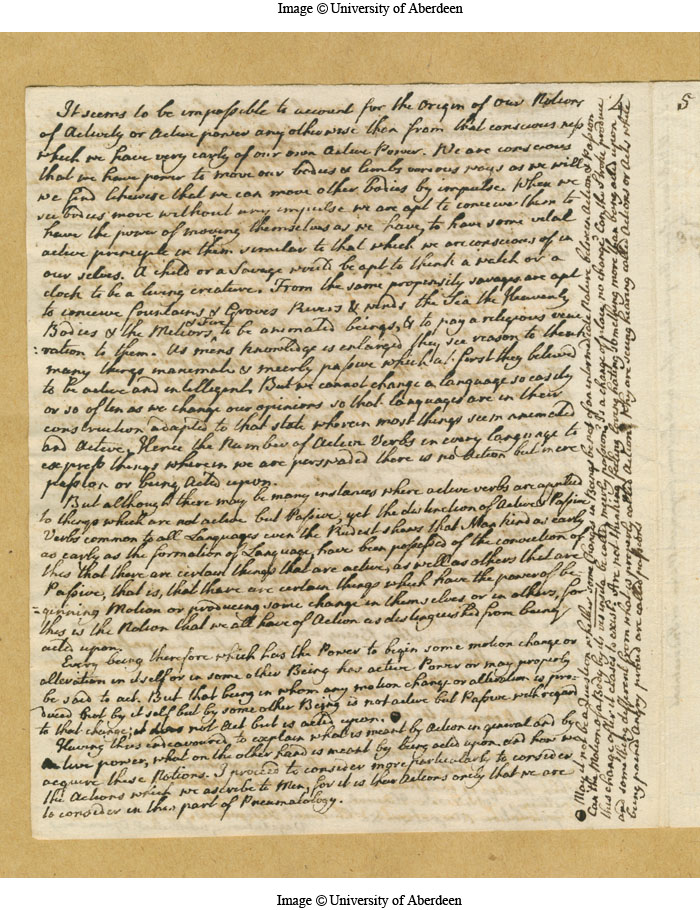 Image © University of Aberdeen
5
It seems to be impossible to account for the Origin of our Notions
of Activity or Active power any otherwise than from that conscious ness
which we have very early of our own Active Power. We are conscious
that we have power to move our bodies & limbs various ways as we will
we find likewise that we can move other bodies by impulse. When we
see bodies move without any impulse we are apt to conceive them to
have the power of moving themselves as we have, to have some vital
active principle in them similar to that which we are conscious of in
our selves. A child or a Savage would be apt to think a watch or a
clock to be a living creature. From the same propensity savages are apt
to conceive fountains & Groves Rivers & winds the Sea the Heavenly
Bodies & the Meteors & Fire to be animated beings, & to pay a religious vene
:ration to them. As mens knowledge is enlarged they see reason to think
many things inanimate & meerly passive which at first they believed
to be active and intelligent. But we cannot change a language so easily
or so often as we change our opinions so that languages are in their
construction adapted to that state wherein most things seem animated
and Active. Hence the Number of Active Verbs in every language to
express things wherein we are perswaded there is no Action but mere
passion or being Acted upon.
But although there may be many instances where active verbs are applied
to things which are not active but Passive, yet the distinction of Active & Passive
Verbs common to all Languages even the Rudest shews that Mankind as early
as early as the formation of Language, have been possessed of the conviction of
this that there are certain things that are active, as well as others that are
Passive, that is, that there are certain things which have the power of be
=ginning Motion or producing some change in themselves or in others, for
this is the Notion that we all have of Action as distinguished from being
acted upon.
Every being therefore which has the Power to begin some motion change or
alteration in it self or in some other Being has active Power or may properly
be said to act. But that being in whom any motion change or alteration is pro-
duced not by it self but by some other Being is not active but Passive with regard
to that change; it does not Act but is acted upon.
Having thus endeavoured to explain what is meant by Action in general and by
Active power, what on the other hand is meant by being acted upon, and how we
acquire these Notions. I proceed to consider more particularly to consider
the Actions which we ascribe to Men, for it is their Actions only that we are
to consider in this part of Pneumatology.
May it not be a Question whether some changes in Beings be not of an intermediate Nature between Action & Passion
Can the Motion of a Body by its vis insita be called merely passion? Is a change of place no change? Can the Stroke produce
this change after it ceases to exist?
and something different from what is properly called Action?
being pained angry pleased are called passions
Image © University of Aberdeen